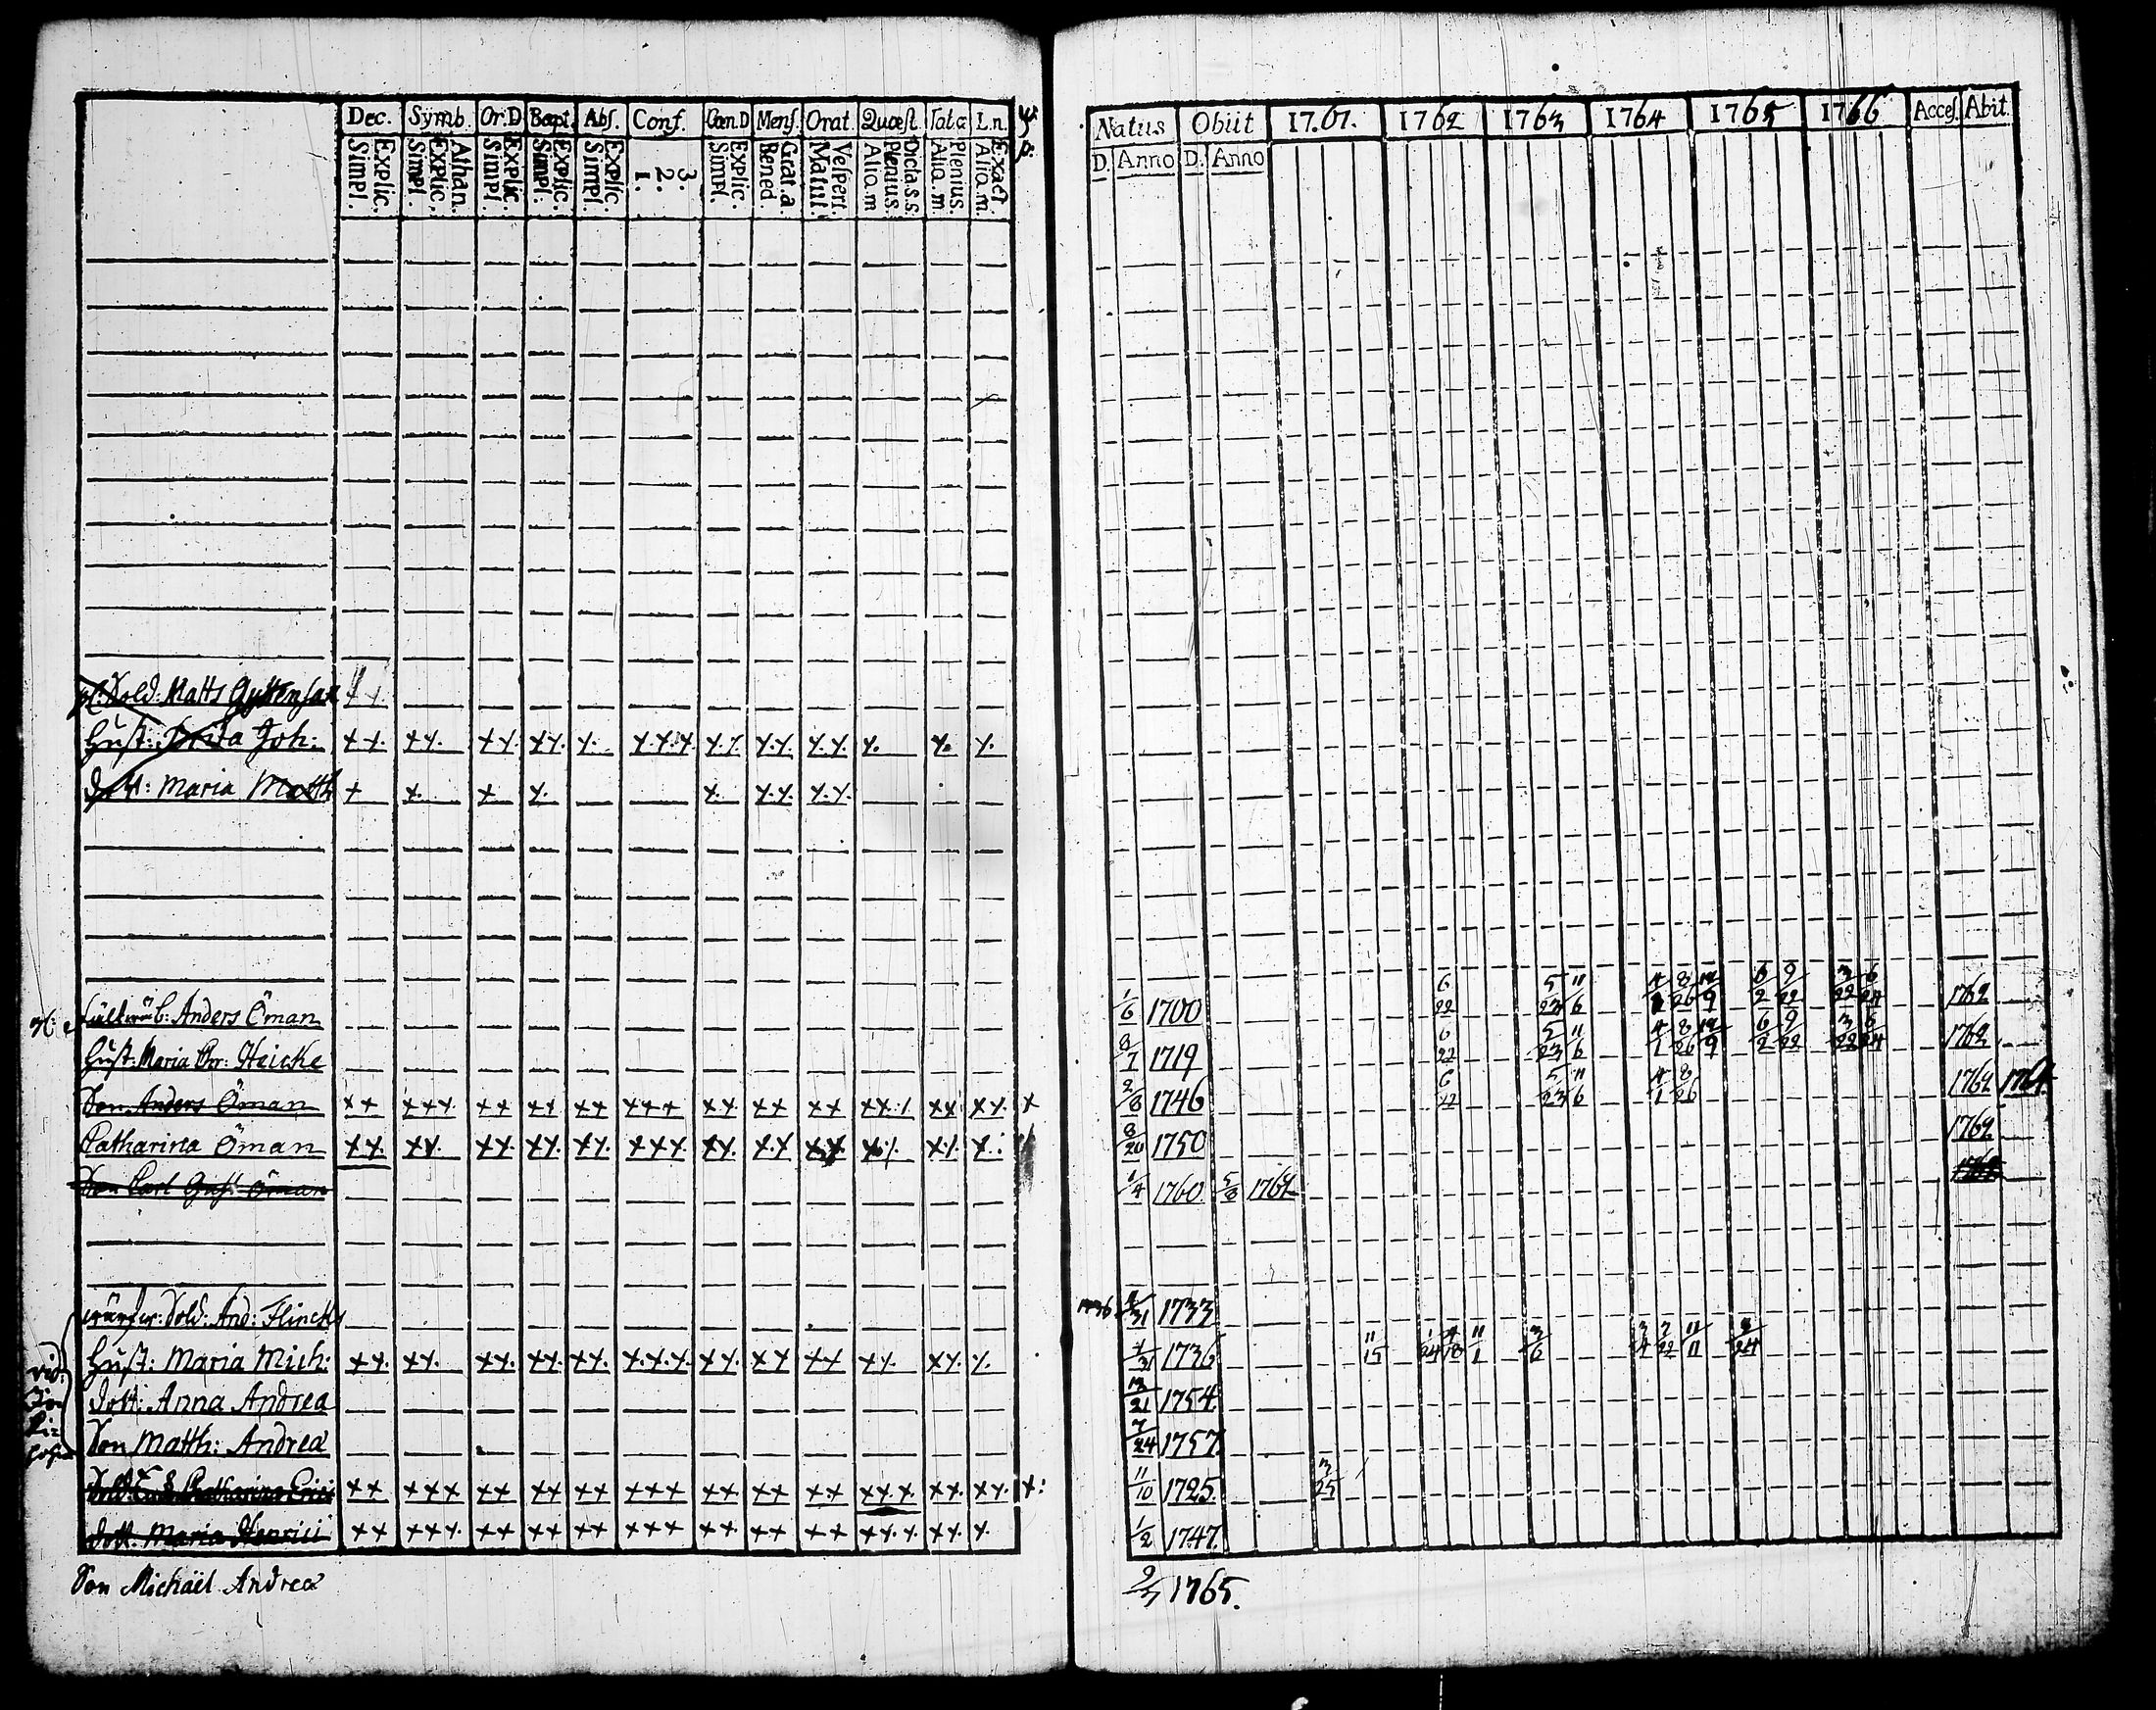 Dec. Symb. Or.D Bapt. Abs. Conf. Cœn.D Mens. Orat. Quæst. Tab.œ L.n.
Explic. Simpl. Athan. Explic. Simpl. Explic. Simpl. Explic. Simpl. Explic. Simpl. 3. 2. 1. Explic. Simpl. Grat.a. Bened Vespert. Matut. Dicta.s.s. Plenius. Aliq.m Plenius. Aliq.m Exact Aliq.m.
Sold: Matts Gyttensax
Hust: Brita Joh: ++. ++. ++. ++. +. +.+.+ +.+. +.+. +.+. +. +. +.
dott: Maria Matth + +. +. +. +. +.+. +.+.
Anders Öman
Hust: Maria Chr: Heicke
Son Anders Öman ++ +++. ++ ++ ++ +++ ++. ++ ++ ++.+ ++ ++. +
Catharina Öman ++. ++. ++. ++. ++. +++. ++. +.+ ++. +.+. +.+. +.
Son Carl Gust: Öman
Sold: And: Flinck
Hust: Maria Mich: ++. ++. ++. ++. ++. +.+.+. ++. ++ ++ ++. ++. +.
vid:
dott: Anna Andreæ
Son Matth: Andreæ
Catharina Erici ++ +++ ++ ++ ++ +++ ++ ++ ++ ++.+. ++. ++. +:
dott. Maria Henrici ++ +++. ++ ++ ++ +++ ++. ++ ++ ++.+. ++. +.
Son Michaël Andreæ
Natus Obiit 17.61. 1762 1763 1764 1765 1766 Acces. Abit.
D. Anno D. Anno
1/6 1700 6/22 5/23 11/6 4/1 8/26 12/9 6/2 9/22 3/22 6/24 1762
8/7 1719 6/22 5/23 11/6 4/1 8/26 12/9 6/2 9/22 3/22 6/24 1762
2/8 1746 6/22 5/23 11/6 4/1 8/26 1762 1764
8/20 1750 1762
1/4 1760 5/8 1762 1762
1736 4/31 1733
4/31 1736 11/15 1/24 4/18 11/1 3/6 3/4 7/22 11/11 3/24
12/21 1754
7/24 1757
11/10 1725 3/25
1/2 1747.
9/3 1765.